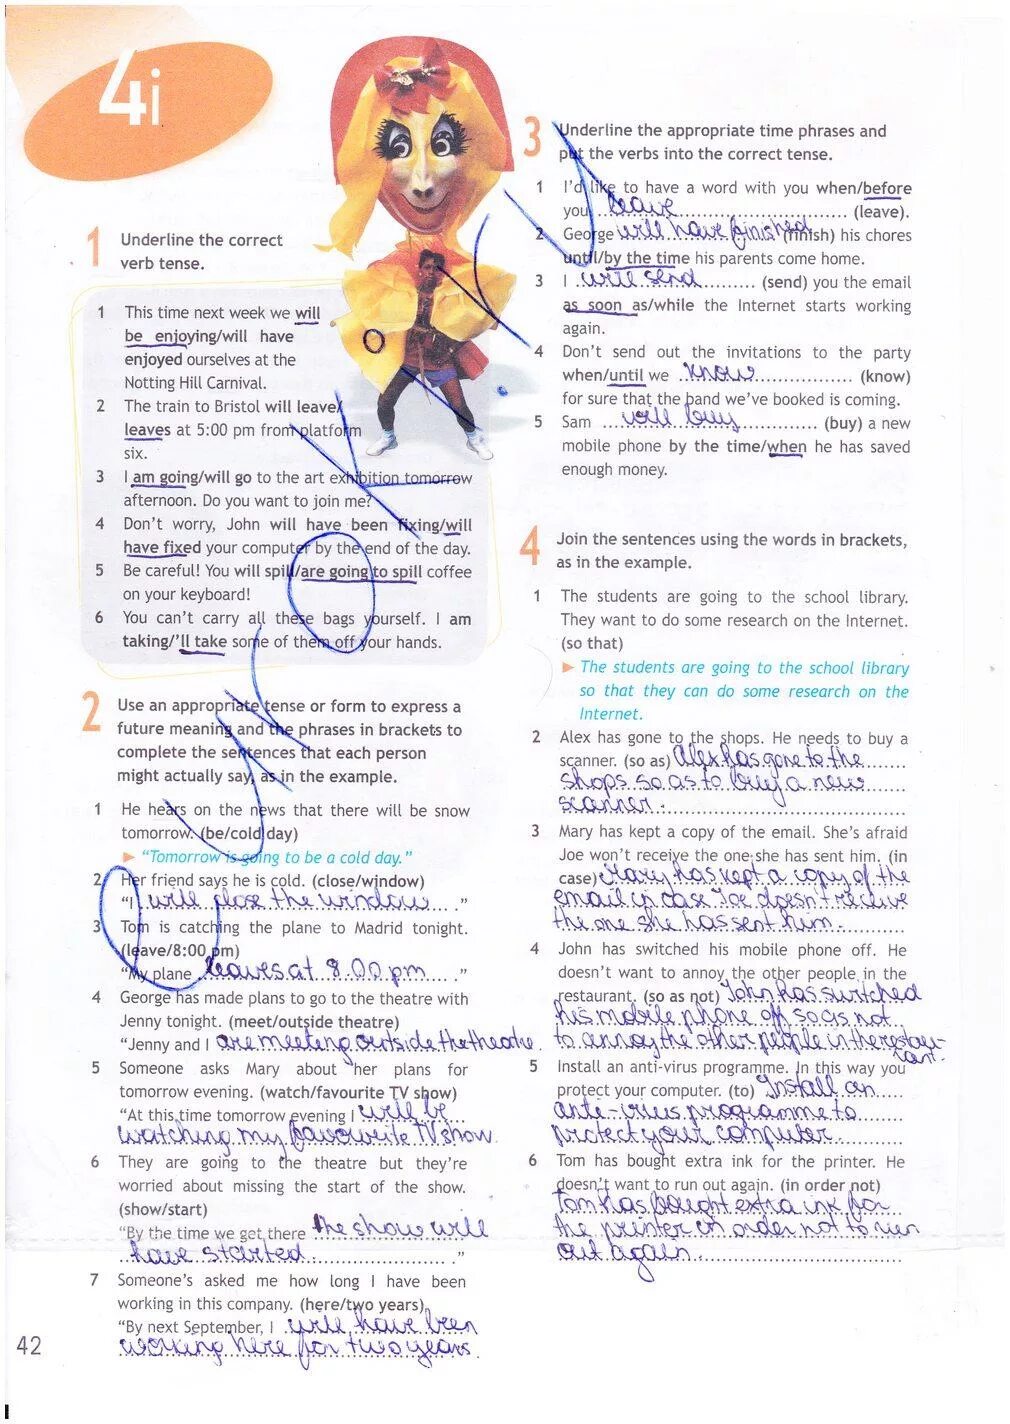 4i
1 Underline the correct
verb tense.
1 This time next week we will
be enjoying/will have
enjoyed ourselves at the
Notting Hill Carnival.
2 The train to Bristol will leave/
leaves at 5:00 pm from platform
six.
3 I am going/will go to the art exhibition tomorrow
afternoon. Do you want to join me?
4 Don't worry, John will have been fixing/will
have fixed your computer by the end of the day.
5 Be careful! You will spill/are going to spill coffee
on your keyboard!
6 You can't carry all these bags yourself. I am
taking/'ll take some of them off your hands.
2 Use an appropriate tense or form to express a
future meaning and the phrases in brackets to
complete the sentences that each person
might actually say, as in the example.
1 He hears on the news that there will be snow
tomorrow. (be/cold day)
"Tomorrow is going to be a cold day."
2 Her friend says he is cold. (close/window)
"I will close the window."
3 Tom is catching the plane to Madrid tonight.
(leave/8:00 pm)
"My plane leaves at 8.00 pm."
4 George has made plans to go to the theatre with
Jenny tonight. (meet/outside theatre)
"Jenny and I are meeting outside the theatre.
5 Someone asks Mary about her plans for
tomorrow evening. (watch/favourite TV show)
"At this time tomorrow evening I will be
watching my favourite TV show.
6 They are going to the theatre but they're
worried about missing the start of the show.
(show/start)
"By the time we get there the show will
have started."
7 Someone's asked me how long I have been
working in this company. (here/two years)
"By next September, I will have been
working here for two years.
42
3 Underline the appropriate time phrases and
put the verbs into the correct tense.
1 I'd like to have a word with you when/before
you leave (leave).
2 George will have finished (finish) his chores
until/by the time his parents come home.
3 I will send (send) you the email
as soon as/while the Internet starts working
again.
4 Don't send out the invitations to the party
when/until we know (know)
for sure that the band we've booked is coming.
5 Sam will buy (buy) a new
mobile phone by the time/when he has saved
enough money.
4 Join the sentences using the words in brackets,
as in the example.
1 The students are going to the school library.
They want to do some research on the Internet.
(so that)
The students are going to the school library
so that they can do some research on the
Internet.
2 Alex has gone to the shops. He needs to buy a
scanner. (so as) Alex has gone to the
shops so as to buy a new
scanner.
3 Mary has kept a copy of the email. She's afraid
Joe won't receive the one she has sent him. (in
case) Mary has kept a copy of the
email in case Joe doesn't receive
the one she has sent him.
4 John has switched his mobile phone off. He
doesn't want to annoy the other people in the
restaurant. (so as not) John has switched
his mobile phone off so as not
to annoy the other people in the restau-
rant.
5 Install an anti-virus programme. In this way you
protect your computer. (to) Install an
ante-virus programme to
protect your computer.
6 Tom has bought extra ink for the printer. He
doesn't want to run out again. (in order not)
Tom has bought extra ink for
the printer in order not to run
out again